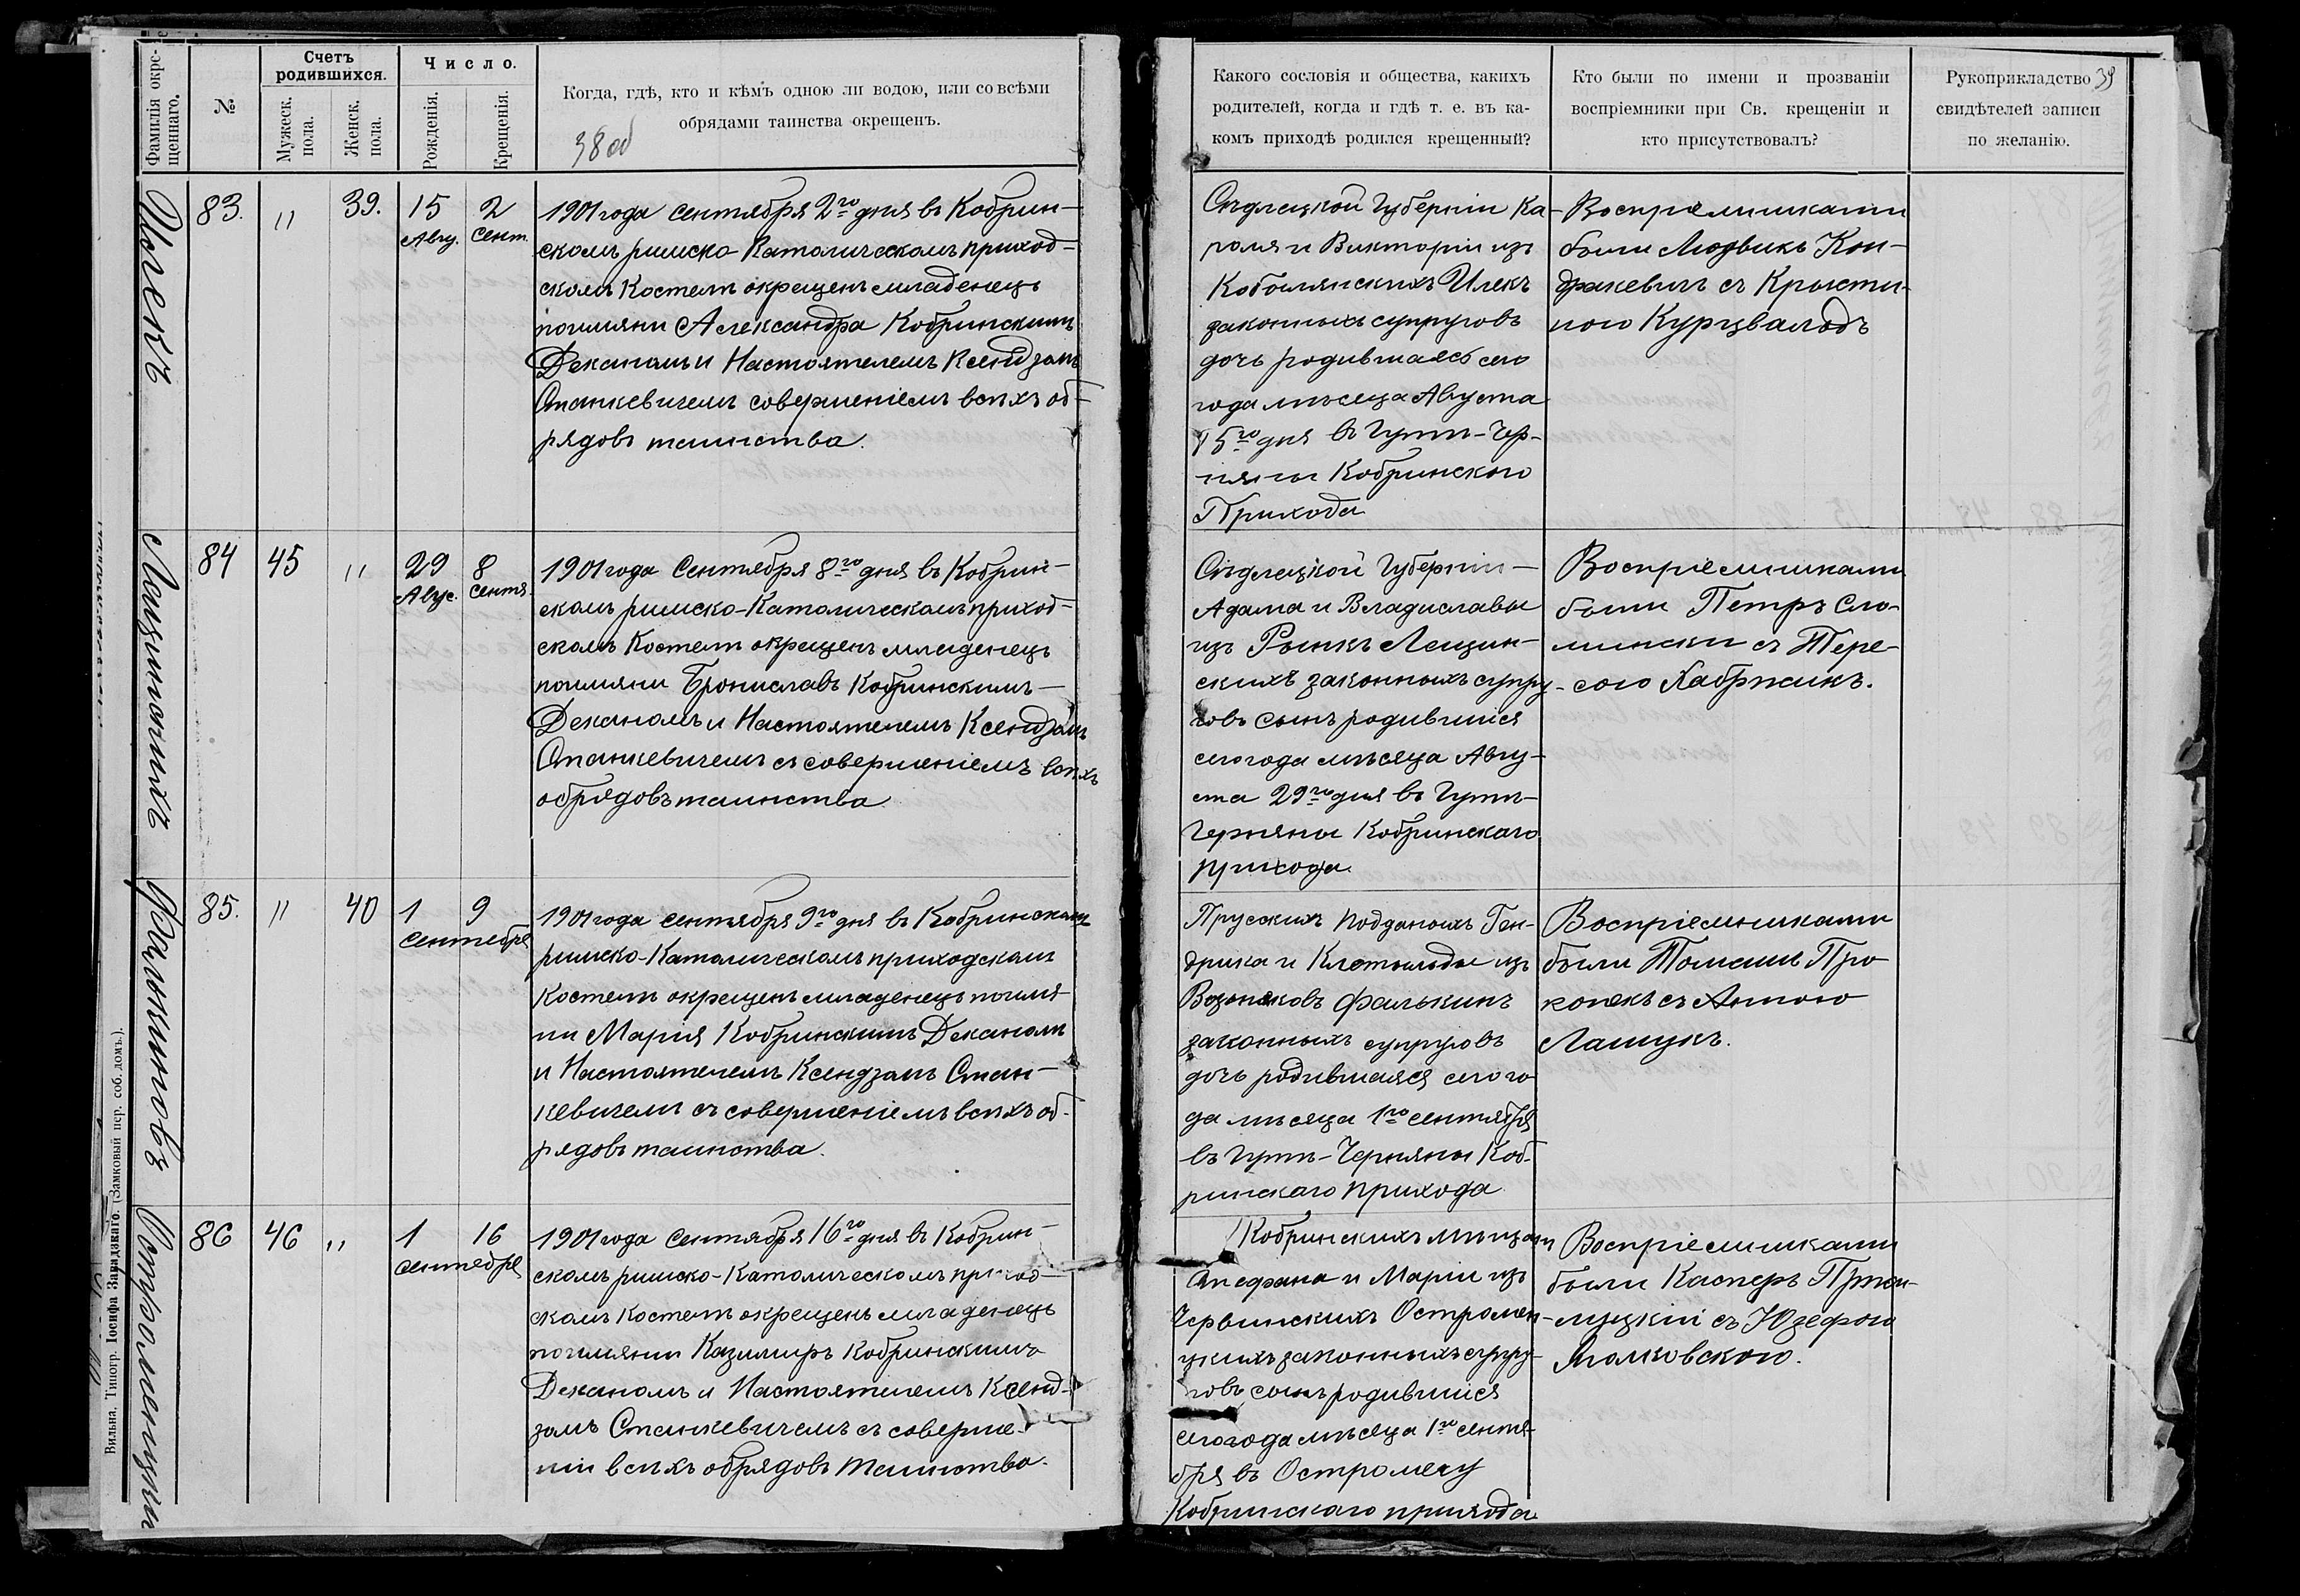 Фамилія окре-
щеннаго.
№
Счетъ
родившихся.
Мужеск.
пола.
Женск.
пола.
Число.
Рожденія.
Крещенія.
Когда, гдѣ, кто и кѣмъ одною ли водою, или со всѣми
обрядами таинства окрещенъ.
38 об
Илекъ
83.
"
39.
15
Авгу.
2
Сент.
1901 года сентября 2го дня въ Кобрин-
скомъ римско-Католическомъ приход-
скомъ Костелѣ окрещенъ младенецъ
по имяни Александра Кобринскимъ
Деканомъ и Настоятелемъ Ксендзомъ
Станкевичемъ совершеніемъ всѣхъ об-
рядовъ таинства.
84
45
"
29
Авгус.
8
Сентя.
1901 года Сентября 8го дня въ Кобрин-
скомъ римско-Католическомъ приход-
скомъ Костелѣ окрещенъ младенецъ
по имяни Брониславъ Кобринскимъ
Деканомъ и Настоятелемъ Ксендзомъ
Станкевичемъ съ совершеніемъ всѣхъ
обрядовъ таинства
85.
"
40
1
9
Сентебря
1901 года сентября 9го дня въ Кобринскомъ
римско-Католическомъ приходскомъ
Костелѣ окрещенъ младенецъ по имя-
ни Марія Кобринскимъ Деканомъ
и Настоятелемъ Ксендзомъ Стан-
кевичемъ съ совершеніемъ всѣхъ об-
рядовъ таинства.
86
46
"
1
16
сентебря
1901 года сентября 16го дня въ Кобрин-
скомъ римско-Католическомъ приход-
скомъ Костелѣ окрещенъ младенецъ
по имяни Казимиръ Кобринскимъ
Деканомъ и Настоятелемъ Ксенд-
зомъ Станкевичемъ съ соверше-
ніи всѣхъ обрядовъ таинства.
Вильна. Типогр. Іосифа Завадзкаго. (Замковый пер. соб. домъ.).
Какого сословія и общества, какихъ
родителей, когда и гдѣ т. е. въ ка-
комъ приходѣ родился крещенный?
Кто были по имени и прозваніи
воспріемники при Св. крещеніи и
кто присутствовалъ?
Рукоприкладство
свидѣтелей записи
по желанію.
39
Сѣдлецкой Губерніи Ка-
роля и Викторіи изъ
Илекъ
законныхъ супруговъ
дочь родившаясь сего
года мѣсеца Августа
15го дня въ Гутѣ-Чер-
няны Кобринского
Прихода
Воспріемниками
были Людвикъ Кон-
дракевичъ съ Крысти-
ною Курцвальдъ
Сѣдлецкой Губерніи-
Адама и Владиславы
изъ Рынкъ Лещин-
скихъ законныхъ супру-
говъ сынъ родившійся
сего года мѣсеца Авгу-
ста 29го дня въ Гутѣ-
Черняны Кобринскаго
прихода.
Воспріемниками
были Петръ Сло-
мински съ Тере-
сою
Прусскихъ подданыхъ Ген-
дрика и изъ
Возняковъ Фалькинъ
законныхъ супруговъ
дочь родившаяся сего го
да мѣсяца 1го сентября
въ Гутѣ-Черняны Коб-
ринскаго прихода
Воспріемниками
были Томашъ Про
копекъ съ Анною
Лашукъ.
Кобринскихъ мѣщанъ
Стефана и Маріи изъ
Червинскихъ Остромен-
цкихъ законныхъ супру-
говъ сынъ родившійся
сего года мѣсеца 1го сентя-
бря въ Остромечу
Кобринскаго прихода
Воспріемниками
были Касперъ
съ Юзефою